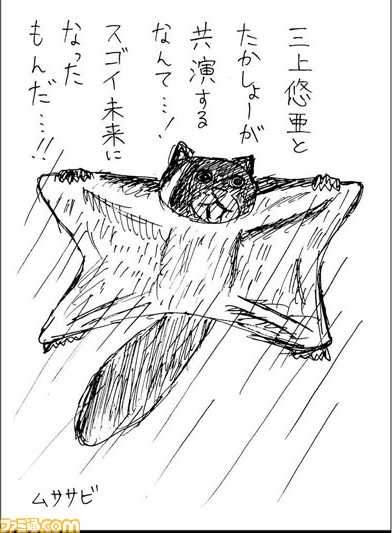 三上悠亜と
たかしょーが
共演する
なんて…!
スゴイ未来に
なった
もんだ…!!
ムササビ
ファミ通.com